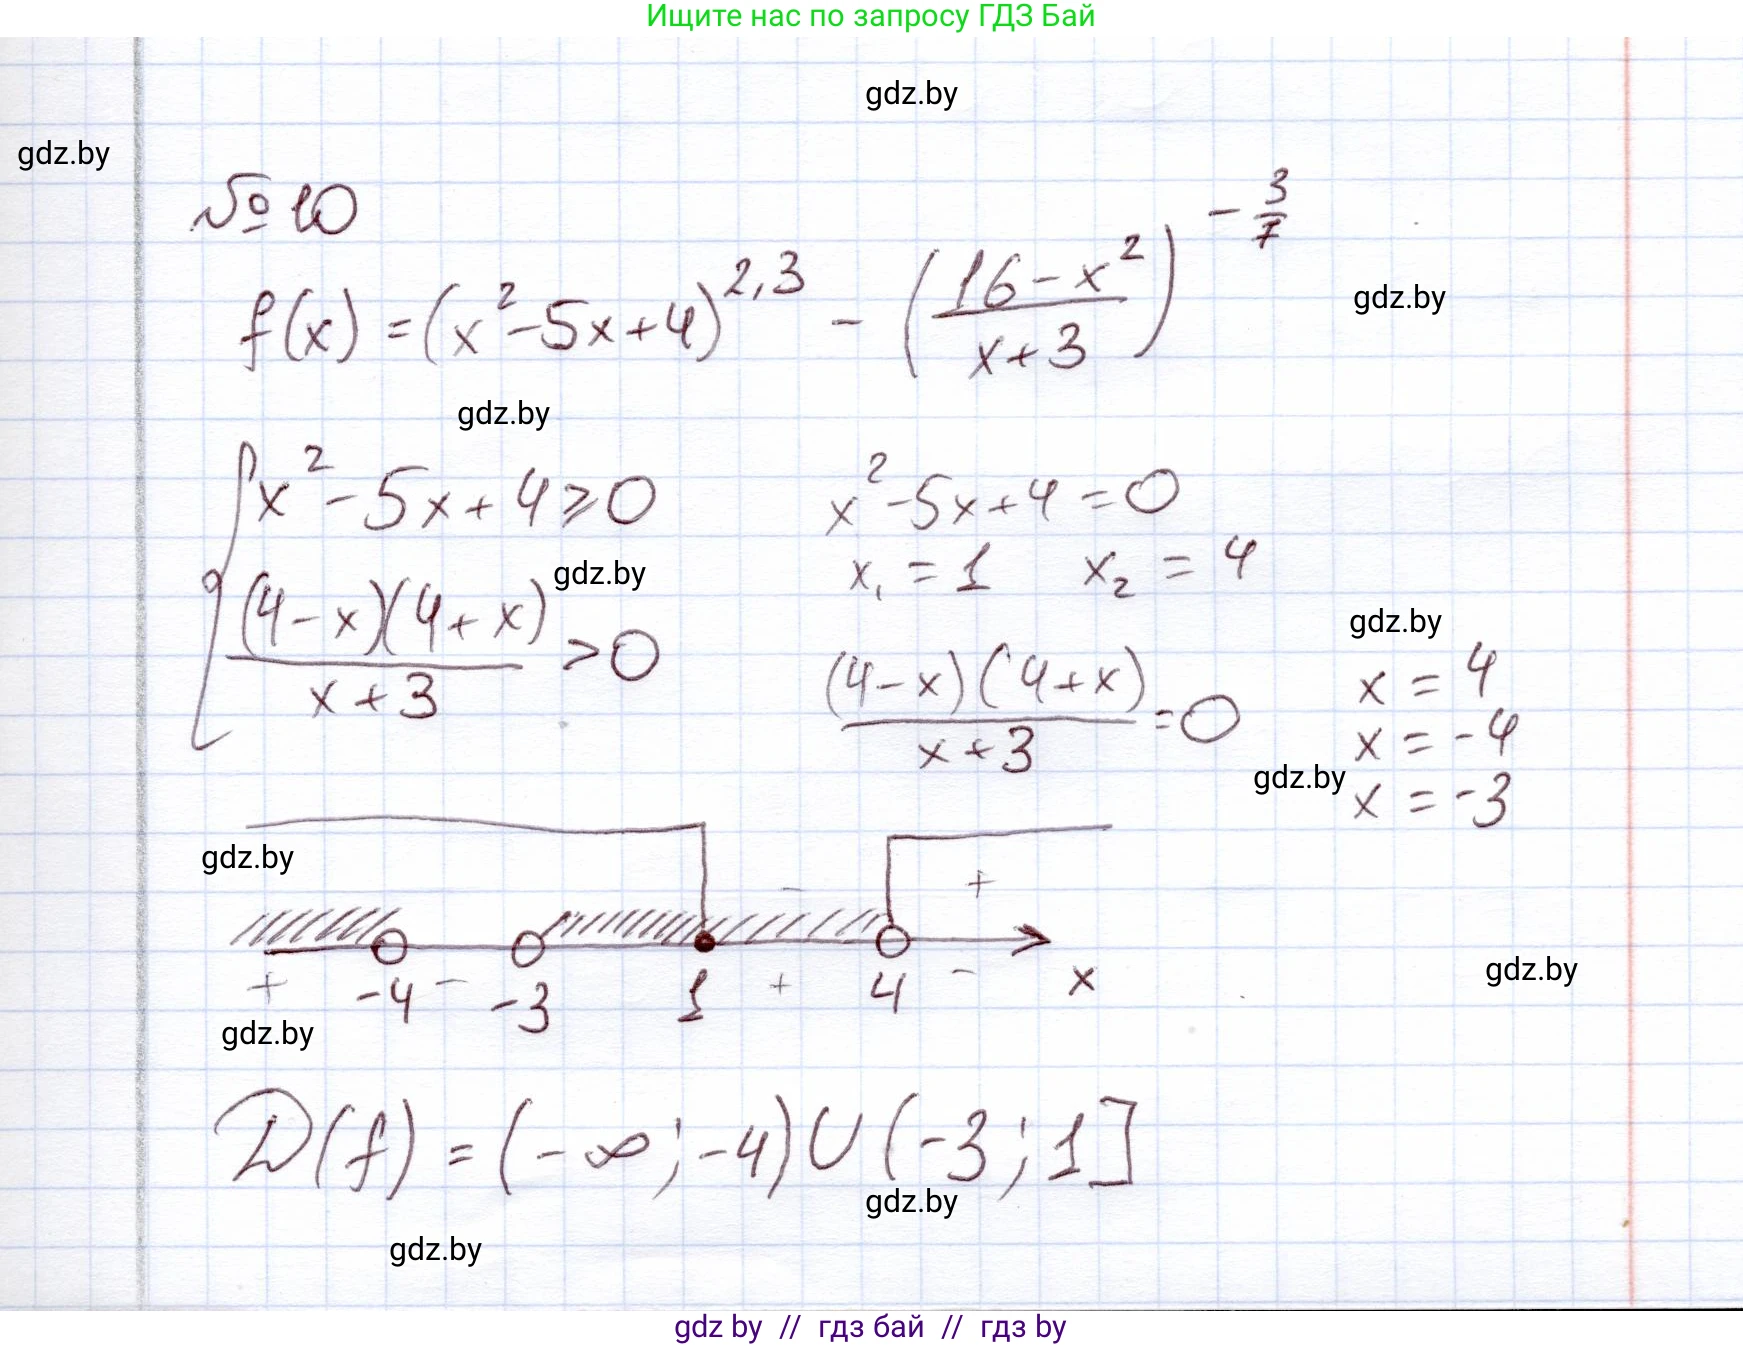 Ищите нас по запросу ГДЗ Бай
gdz.by
gdz.by
№10
f(x) = (x² - 5x + 4)^{2,3} - ((16 - x²)/(x + 3))^{-3/7}
gdz.by
gdz.by
x² - 5x + 4 ⩾ 0
x² - 5x + 4 = 0
gdz.by
x₁ = 1 x₂ = 4
gdz.by
((4 - x)(4 + x))/(x + 3) > 0
((4 - x)(4 + x))/(x + 3) = 0
x = 4
x = -4
gdz.by
x = -3
gdz.by
- +
+ -4 - -3 1 + 4 - x
gdz.by
gdz.by
D(f) = (-∞; -4) ∪ (-3; 1]
gdz.by
gdz.by
gdz by // гдз бай // гдз by